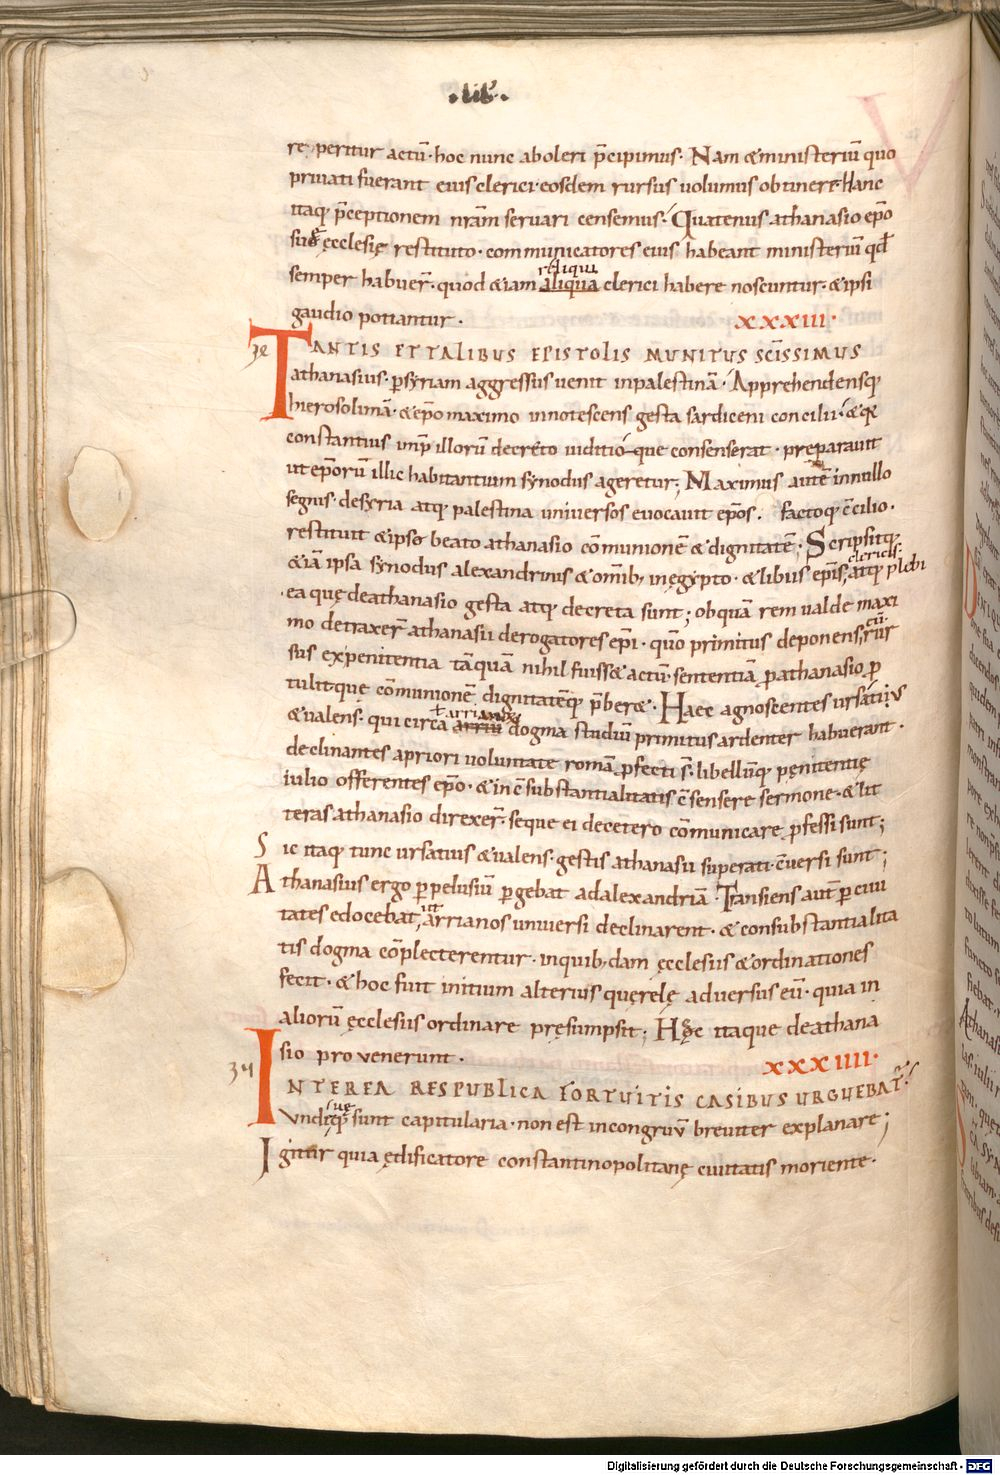 .iiii.
re peritur actū· hoc nunc aboleri p̄cipimus· Nam & ministeriū quo
priuati fuerant eius clerici· eosdem rursus uolumus obtinere· Hanc
itaq; p̄ceptionem nr̄am seruari censemus· Quatenus athanasio ep̄o
suę ęcclesię restituto· communicatores eius habeant ministeriū qđ
reliqui
semper habuer̄· quod &iam aliqua clerici habere noscuntur· & ipsi
gaudio potiantur·
xxxiii·
TANTIS ET TALIBUS EPISTOLIS MUNITUS SCĪSSIMUS
athanasius· p syriam aggressus uenit in palestinā· Apprehendensq;
hierosolimā· & ep̄o maximo innotescens gesta sardiceni concilii· & qđ
constantius imp̄ illorū decreto iuditioque consenserat· preparauit
ut ep̄orū illic habitantium synodus ageretur; Maximus autē in nullo
segnis· de syria atq; palestina uniuersos euocauit ep̄os. factoq; c̄cilio·
restituit & ipse beato athanasio cōmunionē & dignitatē; Scripsitq;
clericis·
& iā ipsa synodus alexandrinis & omīb; in ęgypto· & libiis ep̄is, atq; plebi
ea quę de athanasio gesta atq; decreta sunt; ob quam rem ualde maxi
cū
mo detraxer̄ athanasii derogatores ep̄i· quō primitus deponens, rur
sus ex penitentia tāquam nihil fuiss& actū· sententiā p athanasio p
tulit· quę cōmunionē dignitatēq; p̄ber&· Haec agnoscentes ursatius
ł arrianū
& ualens· qui circa arriū dogma studiū primitus ardenter habuerant·
declinantes a priori uoluntate romā pfecti s̄· libellūq; pęnitentię
iulio offerentes ep̄o· & in c̄substantialitatis c̄sensere sermone· & lit
teras athanasio direxer̄· seque ei de cetero cōmunicare pfessi sunt;
Sic itaq; tunc ursatius & ualens· gestis athanasii superati· c̄uersi sunt;
Athanasius ergo p pelusiū pgebat ad alexandriā· Transiens aut̄ p ciui
ut
tates edocebat, arrianos uniuersi declinarent· & consubstantialita
tis dogma cōplecterentur· in quib; dam ęcclesiis & ordinationes
fecit· & hoc fuit initium alterius quęrelę aduersus eū· quia in
aliorū ęcclesiis ordinare pręsumpsit; Hęc itaque de athana
sio prouenerunt·
xxxiiii·
34
INTEREA RESPUBLICA FORTUITIS CASIBUS URGUEBAT̄·
suę
Undiq; sunt capitularia· non est incongruū breuiter explanare;
Igitur quia ędificatore constantinopolitanę ciuitatis moriente·
Digitalisierung gefördert durch die Deutsche Forschungsgemeinschaft - DFG